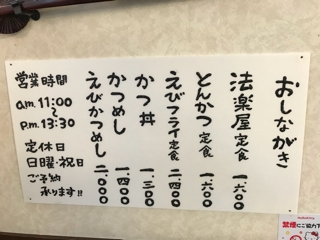 おしながき
法楽屋定食 一、六〇〇
とんかつ定食 一、六〇〇
えびフライ定食 二、四〇〇
かつ丼 一、三〇〇
かつめし 一、四〇〇
えびかつめし 二、〇〇〇
営業時間
a.m. 11:00
〜
p.m. 13:30
定休日
日曜・祝日
ご予約
承ります!!
禁煙にご協力下